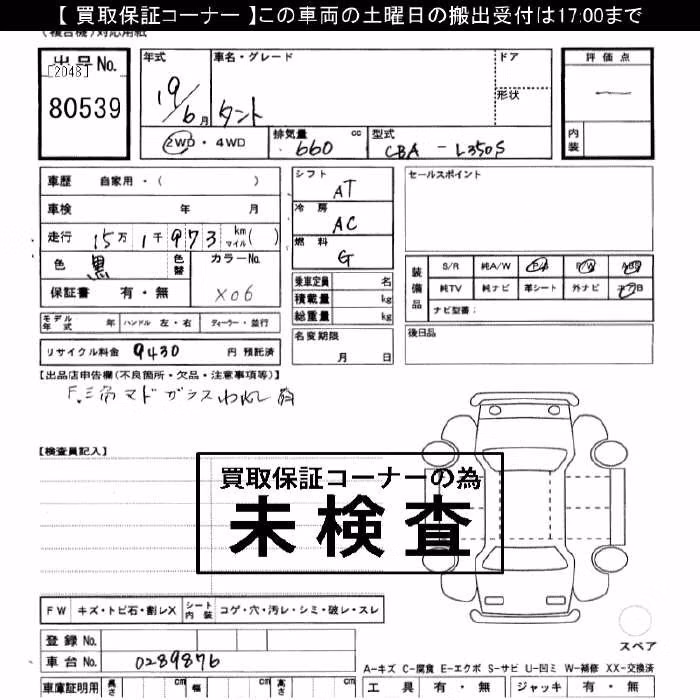 【 買取保証コーナー 】この車両の土曜日の搬出受付は17:00まで
(複合機)対応用紙
出品No.
[2048]
80539
年式 車名・グレード ドア
19/6月 タント 形状
2WD・4WD 排気量 660 cc 型式 CBA-L350S
評価点
内装
車歴 自家用・( )
車検 年 月
走行 15万1千973 km マイル( )
色 黒 色替 カラーNo.
X06
保証書 有・無
シフト AT
冷房 AC
燃料 G
乗車定員 名
積載量 kg
総重量 kg
名変期限
月 日
セールスポイント
装備品 S/R 純A/W P/S P/W ABS
純TV 純ナビ 革シート 外ナビ エアB
ナビ型番:
後日品
モデル年式 年 ハンドル 左・右 ディーラー・並行
リサイクル料金 9430 円 預託済
【出品店申告欄(不良箇所・欠品・注意事項等)】
F.三角マドガラスわれし
【検査員記入】
買取保証コーナーの為
未検査
FW キズ・トビ石・割レX シート内装 コゲ・穴・汚レ・シミ・破レ・スレ
登録No.
車台No. 0289876
車庫証明用 長さ cm 幅 cm 高さ cm
スペア
A-キズ C-腐食 E-エクボ S-サビ U-凹ミ W-補修 XX-交換済
工具 有・無 ジャッキ 有・無